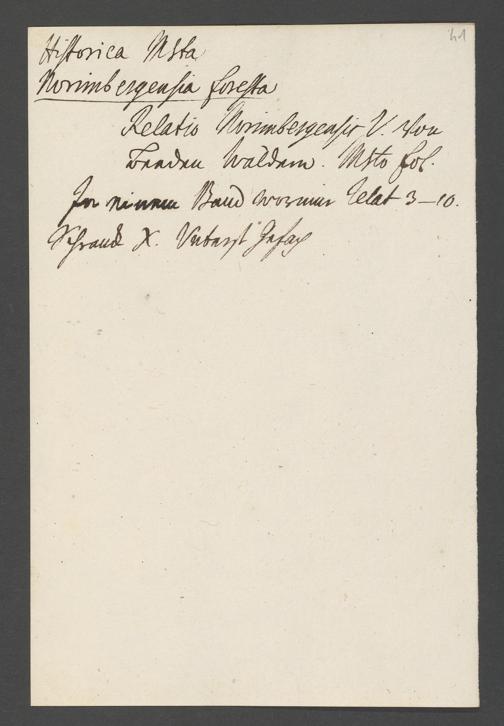 41
Historica Msta
Norimbergensia foresta
Relatio Norimbergensis V. Von
Beeden Wäldern. Msto fol.
In einem Band worinn Relat 3–10.
Schranck X. Unterst Gefach